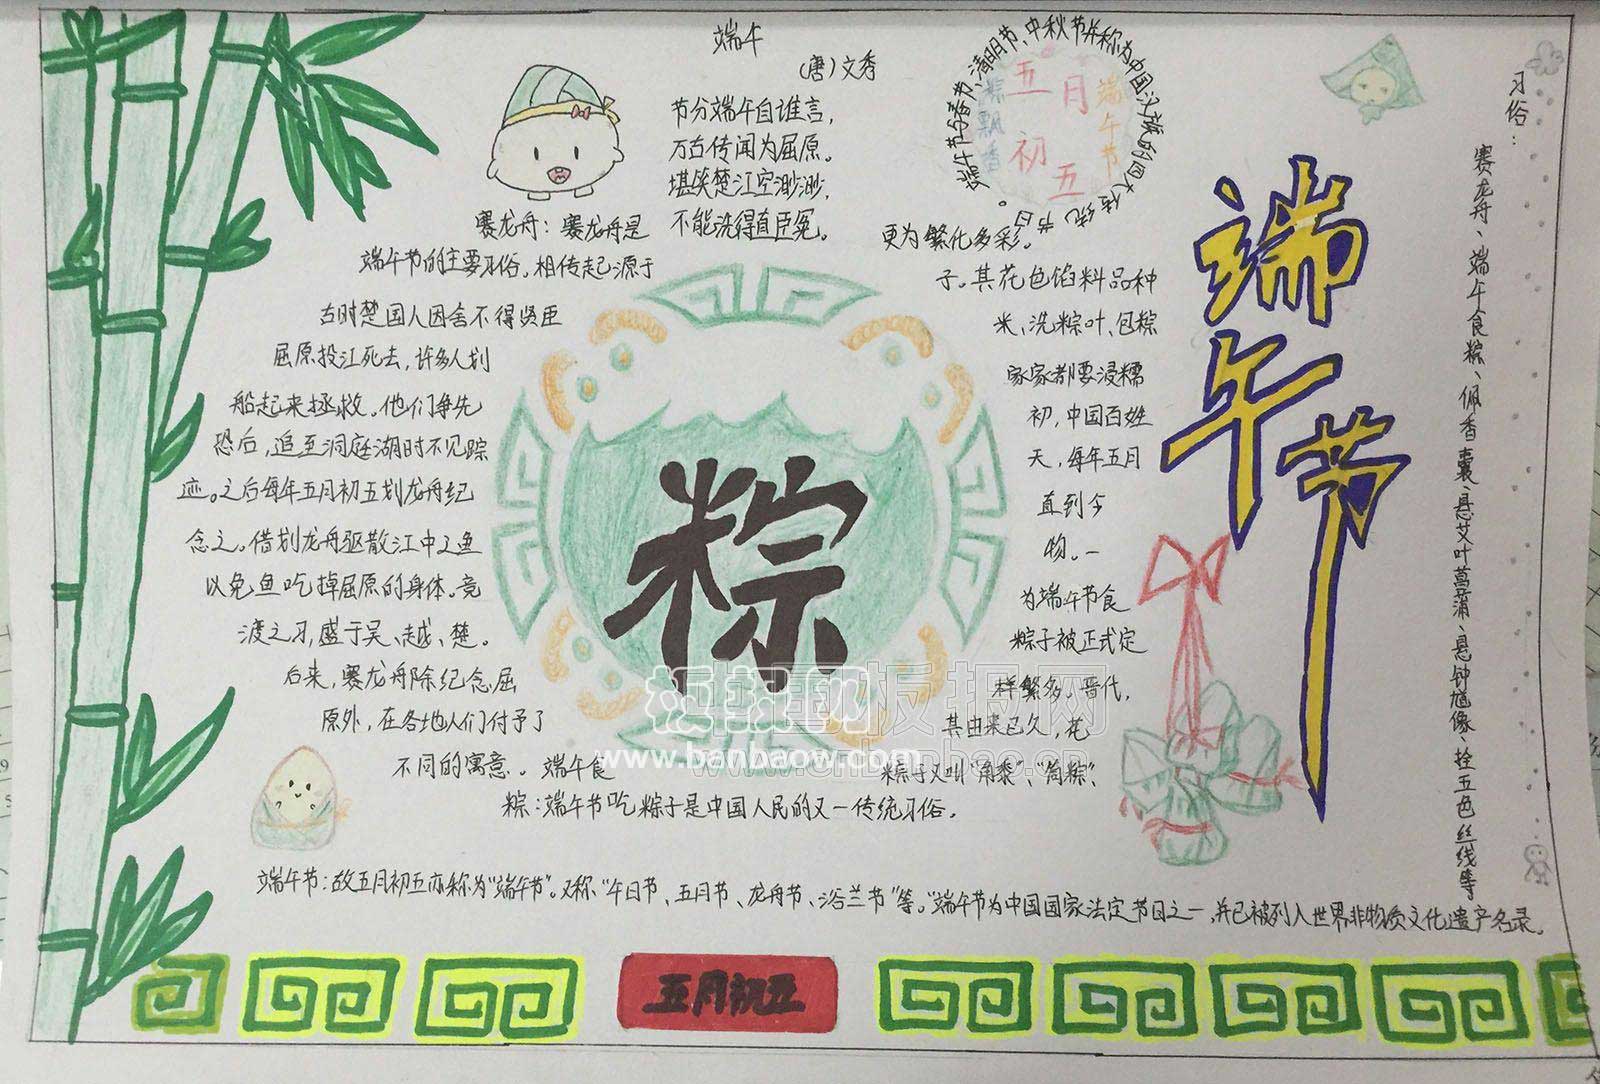 端午
(唐)文秀
节分端午自谁言,
万古传闻为屈原。
堪笑楚江空渺渺,
不能洗得直臣冤。
端午节与春节、清明节、中秋节并称为中国汉族的四大传统节日。
五月
初五
粽飘香
端午节
端午节
习俗:
赛龙舟、端午食粽、佩香囊、悬艾叶菖蒲、悬钟馗像、拴五色丝线等
赛龙舟:赛龙舟是
端午节的主要习俗。相传起源于
古时楚国人因舍不得贤臣
屈原投江死去,许多人划
船起来拯救。他们争先
恐后,追至洞庭湖时不见踪
迹。之后每年五月初五划龙舟纪
念之。借划龙舟驱散江中之鱼
以免鱼吃掉屈原的身体。竞
渡之习,盛于吴、越、楚。
后来,赛龙舟除纪念屈
原外,在各地人们付予了
不同的寓意。端午食
粽:端午节吃粽子是中国人民的又一传统习俗。
粽子又叫“角黍”、“筒粽”、
其由来已久,花
样繁多。晋代,
粽子被正式定
为端午节食
物。一
直到今
天,每年五月
初,中国百姓
家家都要浸糯
米,洗粽叶、包粽
子。其花色馅料品种
更为繁化多彩。
粽
端午节:故五月初五亦称为“端午节”。又称“午日节、五月节、龙舟节、浴兰节”等。“端午节为中国国家法定节日之一,并已被列入世界非物质文化遗产名录。
五月初五
板报网
www.banbaow.com
www.cnbanbao.cn